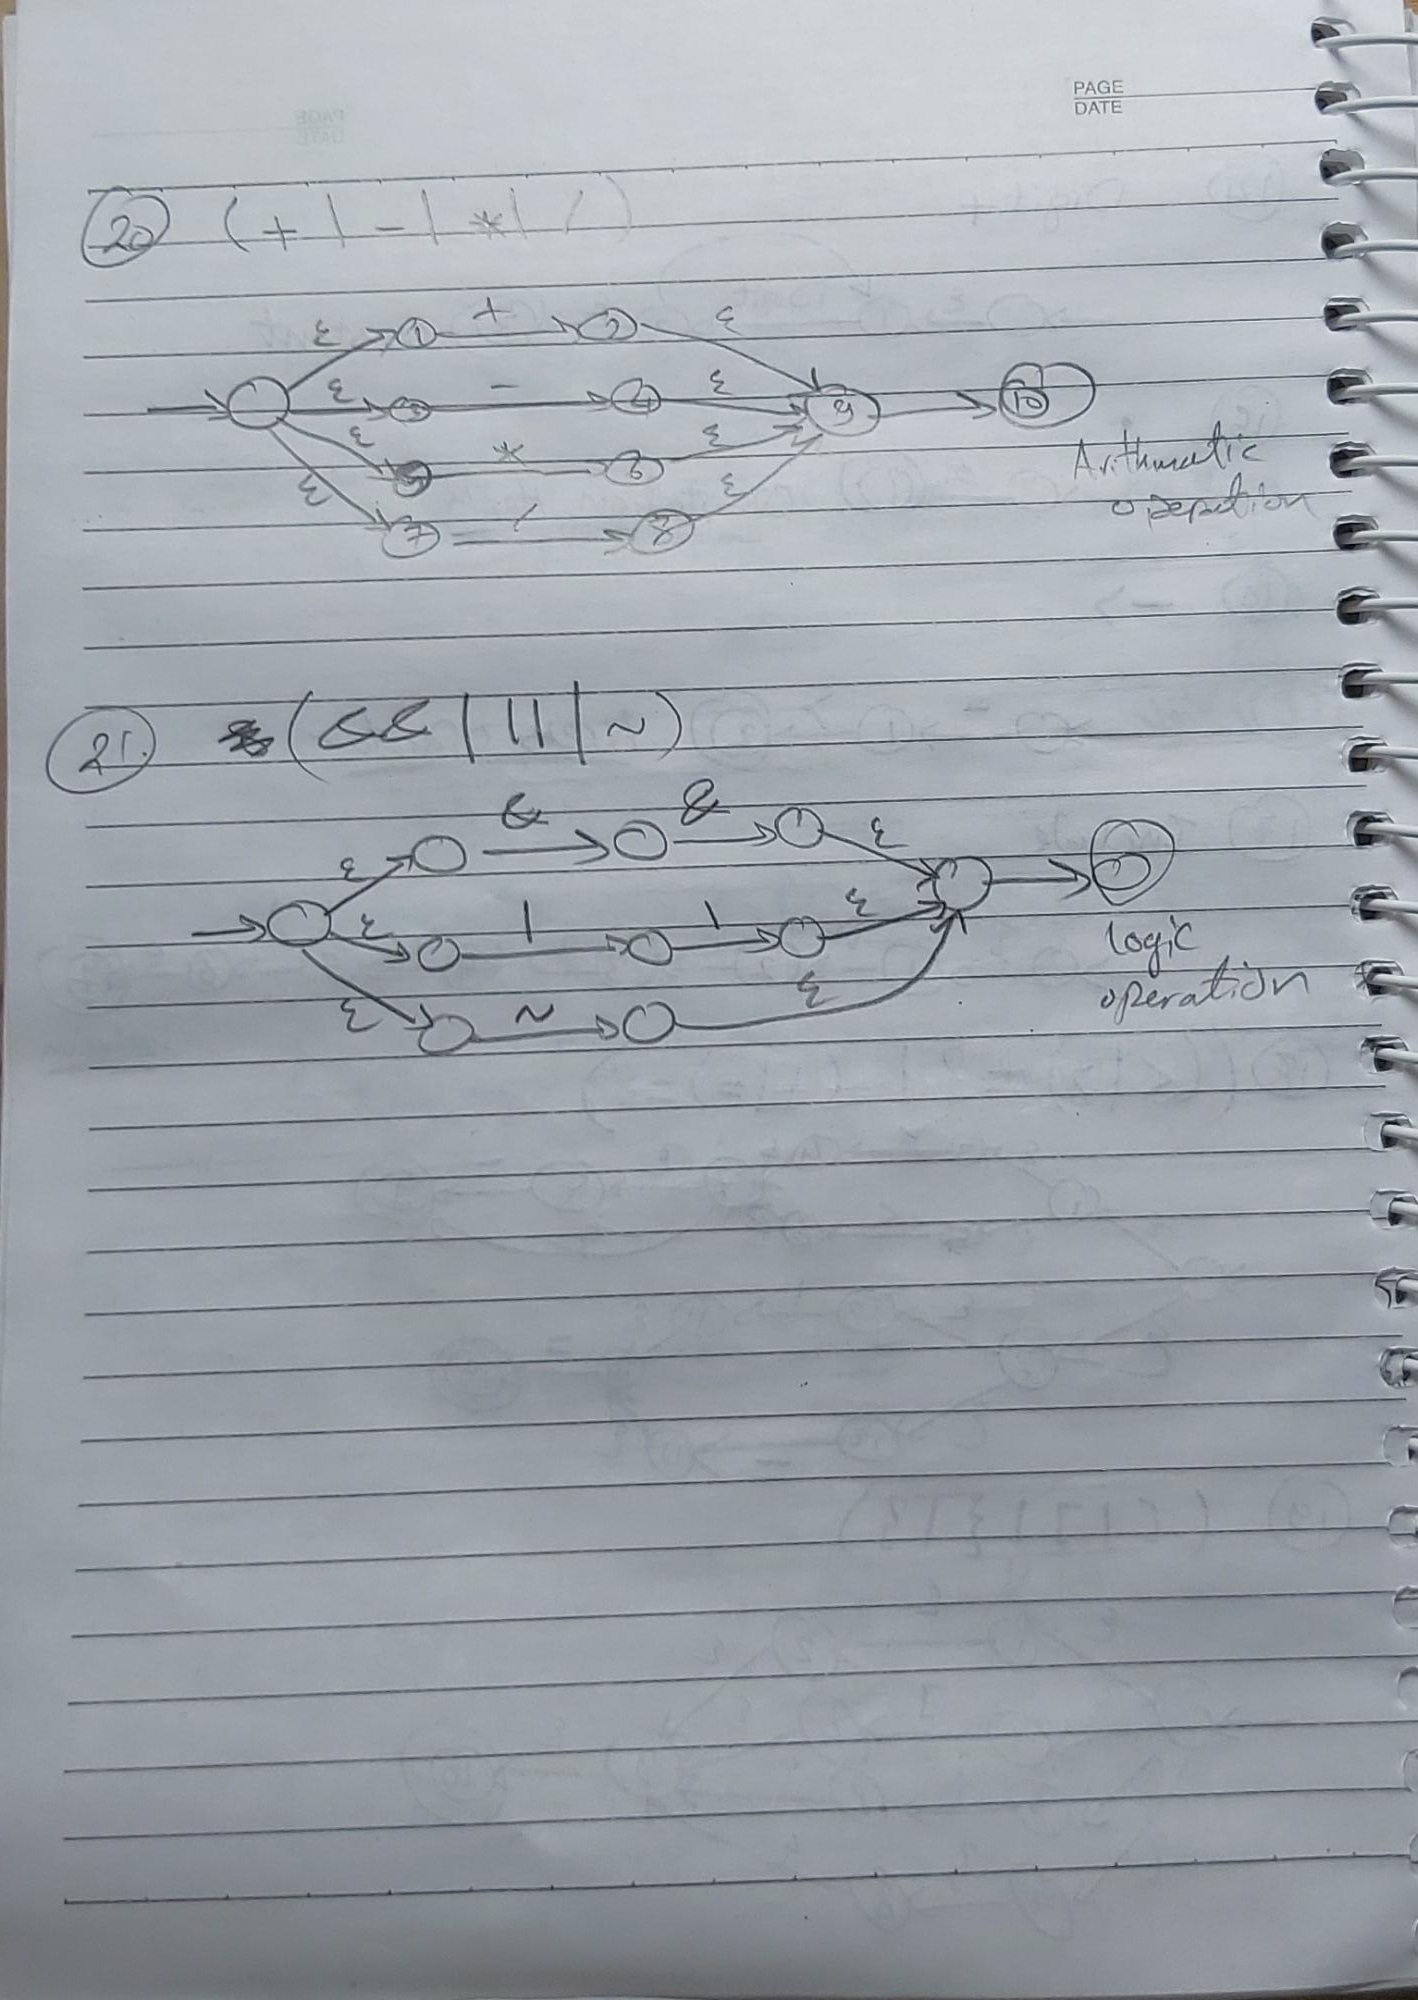 PAGE
DATE
20 (+|-|*|/)
ε 1 + 2 ε
ε 3 - 4 ε 9 10
ε 5 * 6 ε
ε 7 / 8 ε
Arithmatic
operation
21. (&&|||||~)
ε & & ε
ε | | ε
ε ~ ε
logic
operation